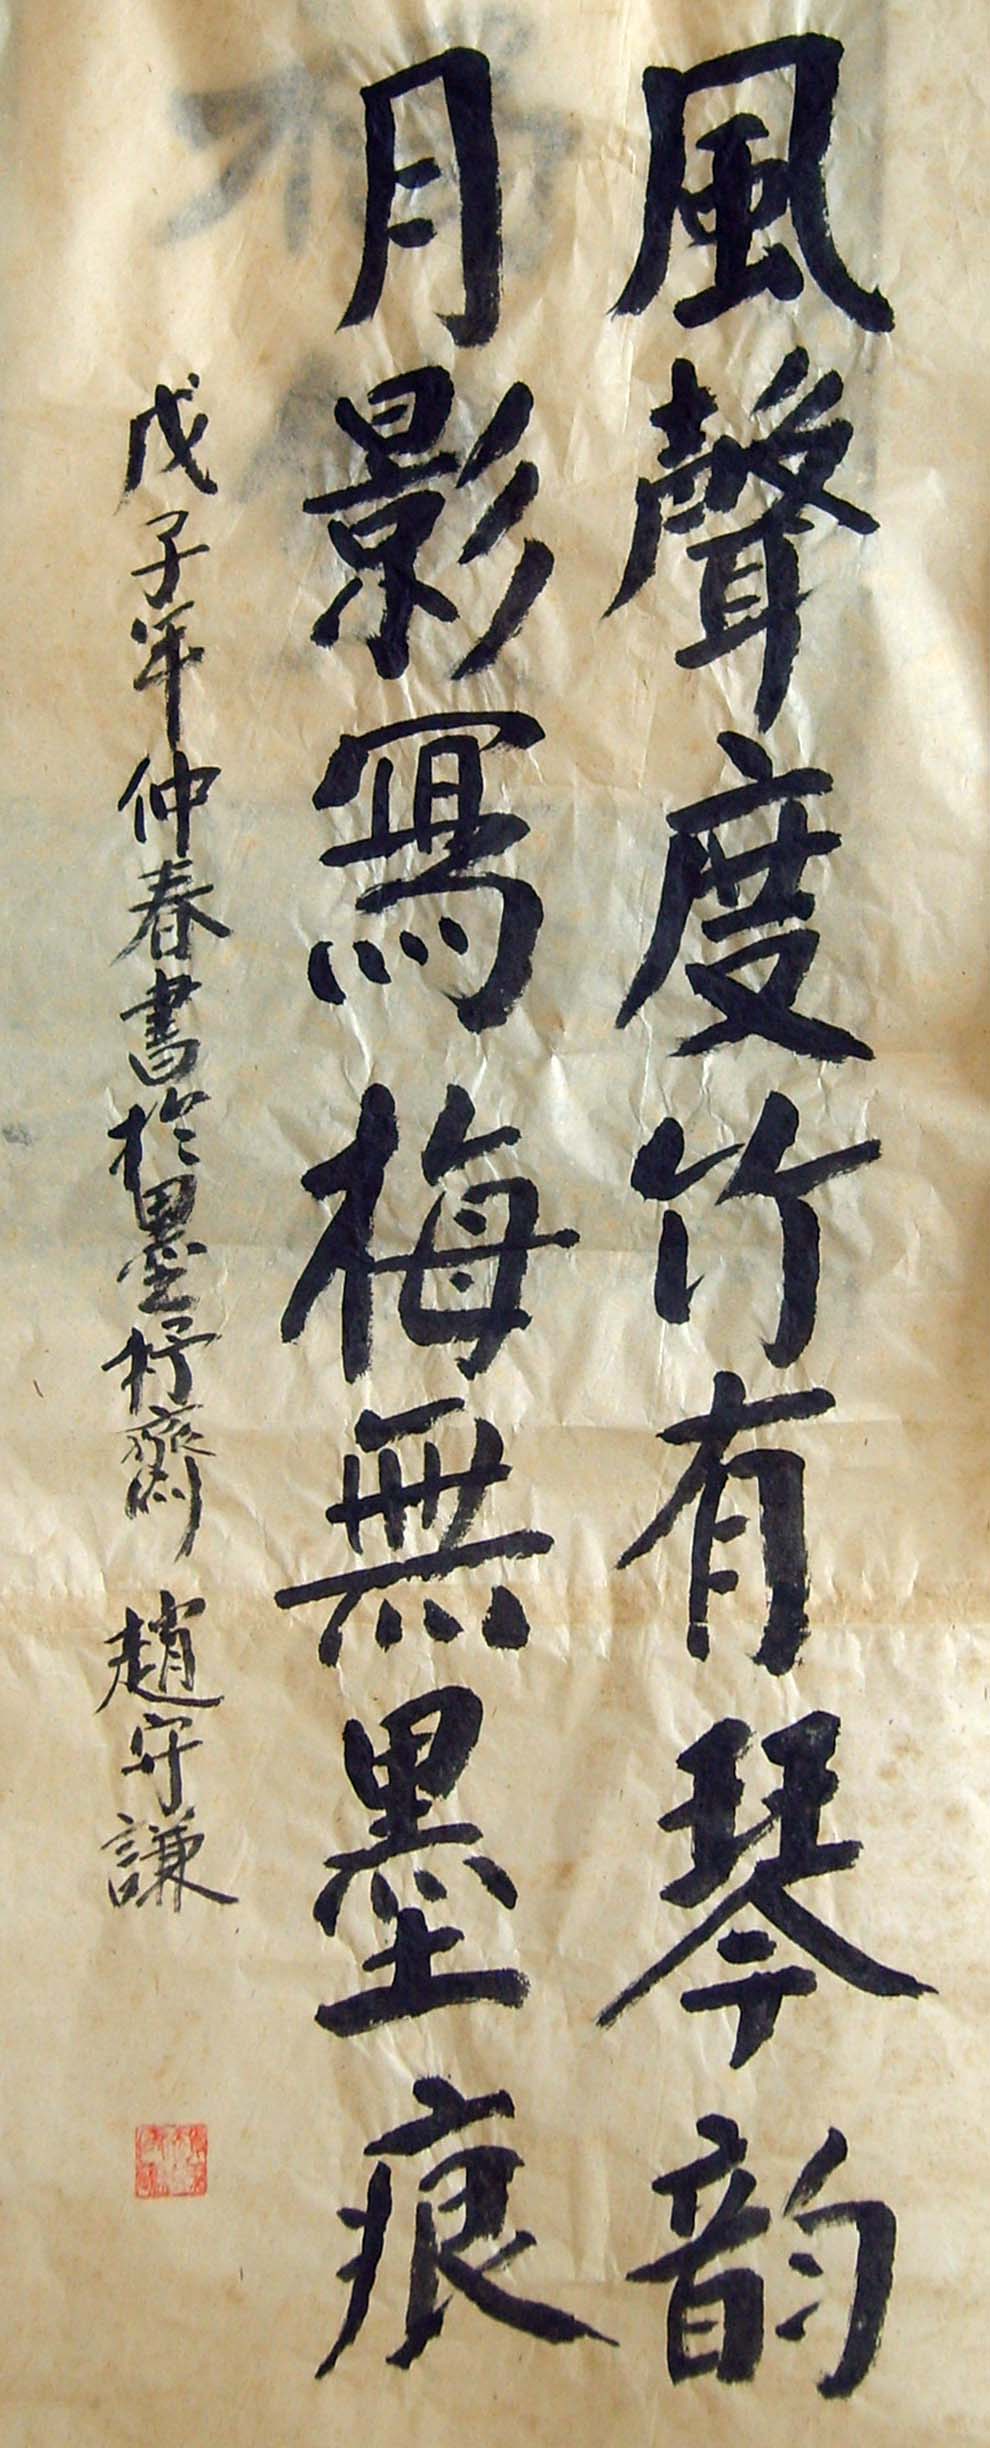 風聲度竹有琴韵
月影寫梅無墨痕
戊子年仲春書於墨抒齋 趙守謙